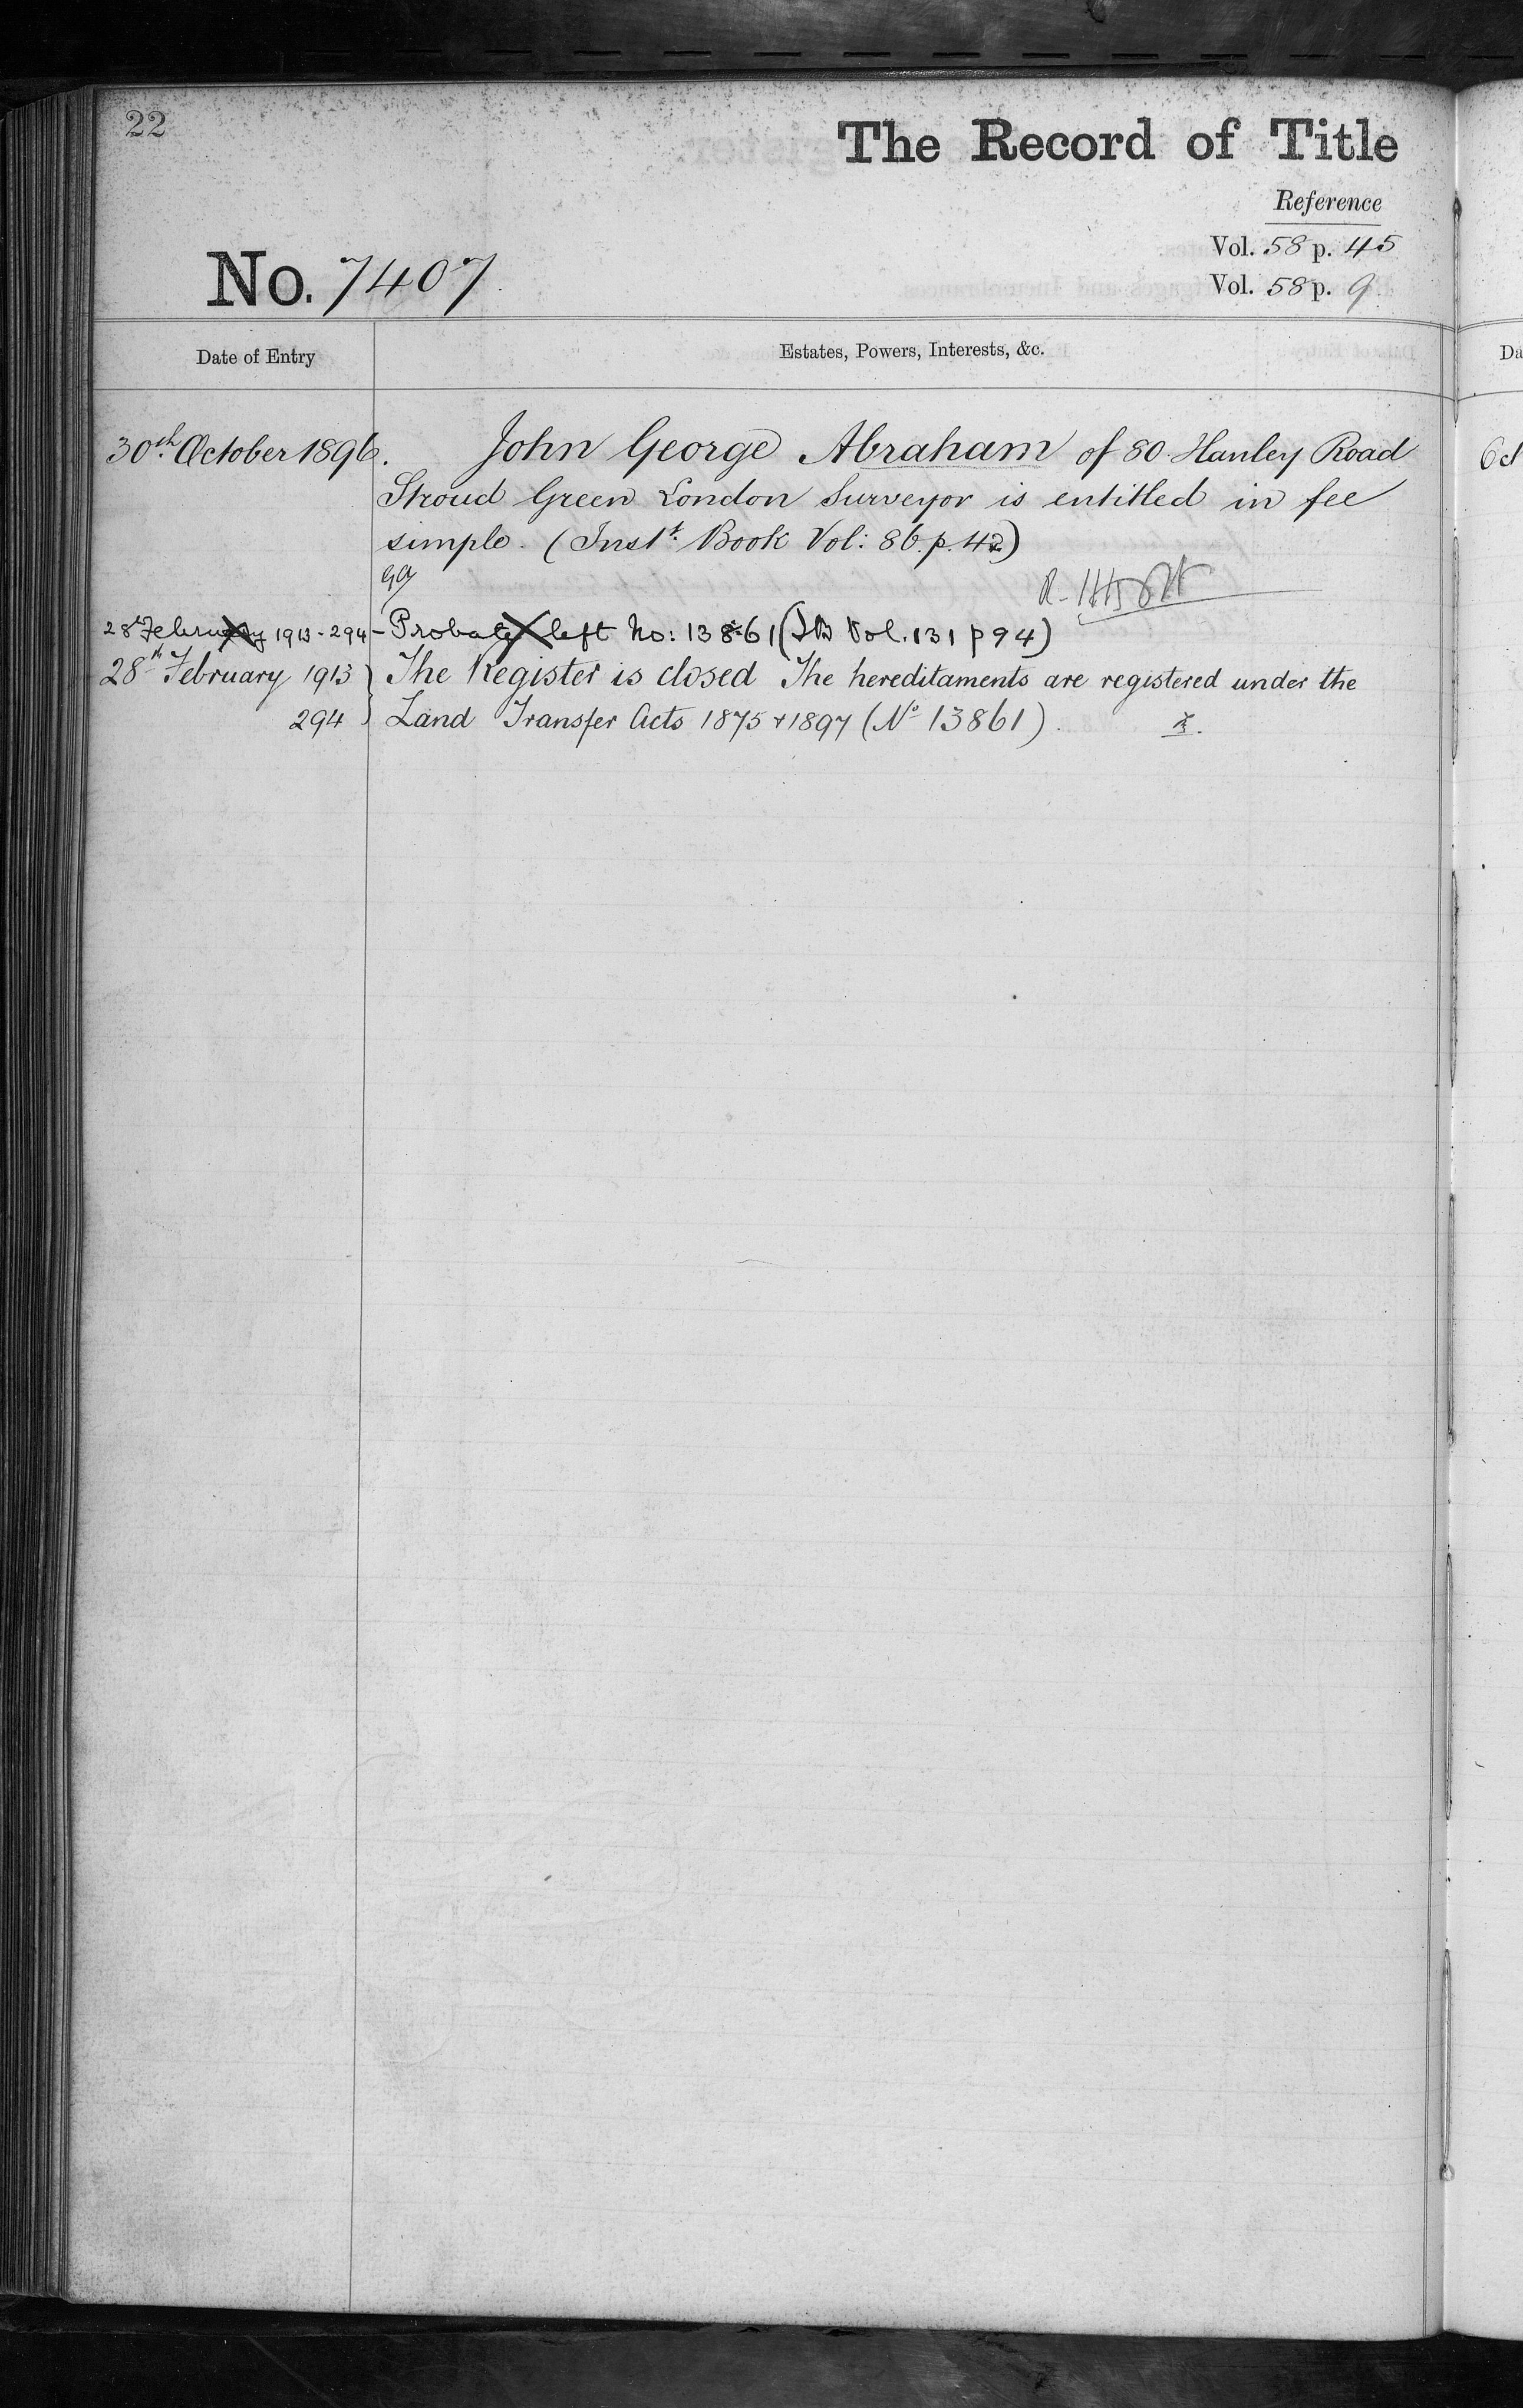 22
The Record of Title
Reference
Vol. 58 p. 45
No. 7407.
Vol. 58 p. 9
Date of Entry
Estates, Powers, Interests, &c.
Da
30th October 1896.
John George Abraham of 80 Hanley Road
Stroud Green London Surveyor is entitled in fee
simple. (Instt. Book Vol: 86. p. 42)
28 February 1913 - 294 - Probate left No: 13861 (IB Vol. 131 p 94)
28th February 1913
The Register is closed The hereditaments are registered under the
294
Land Transfer Acts 1875 & 1897 (No 13861).